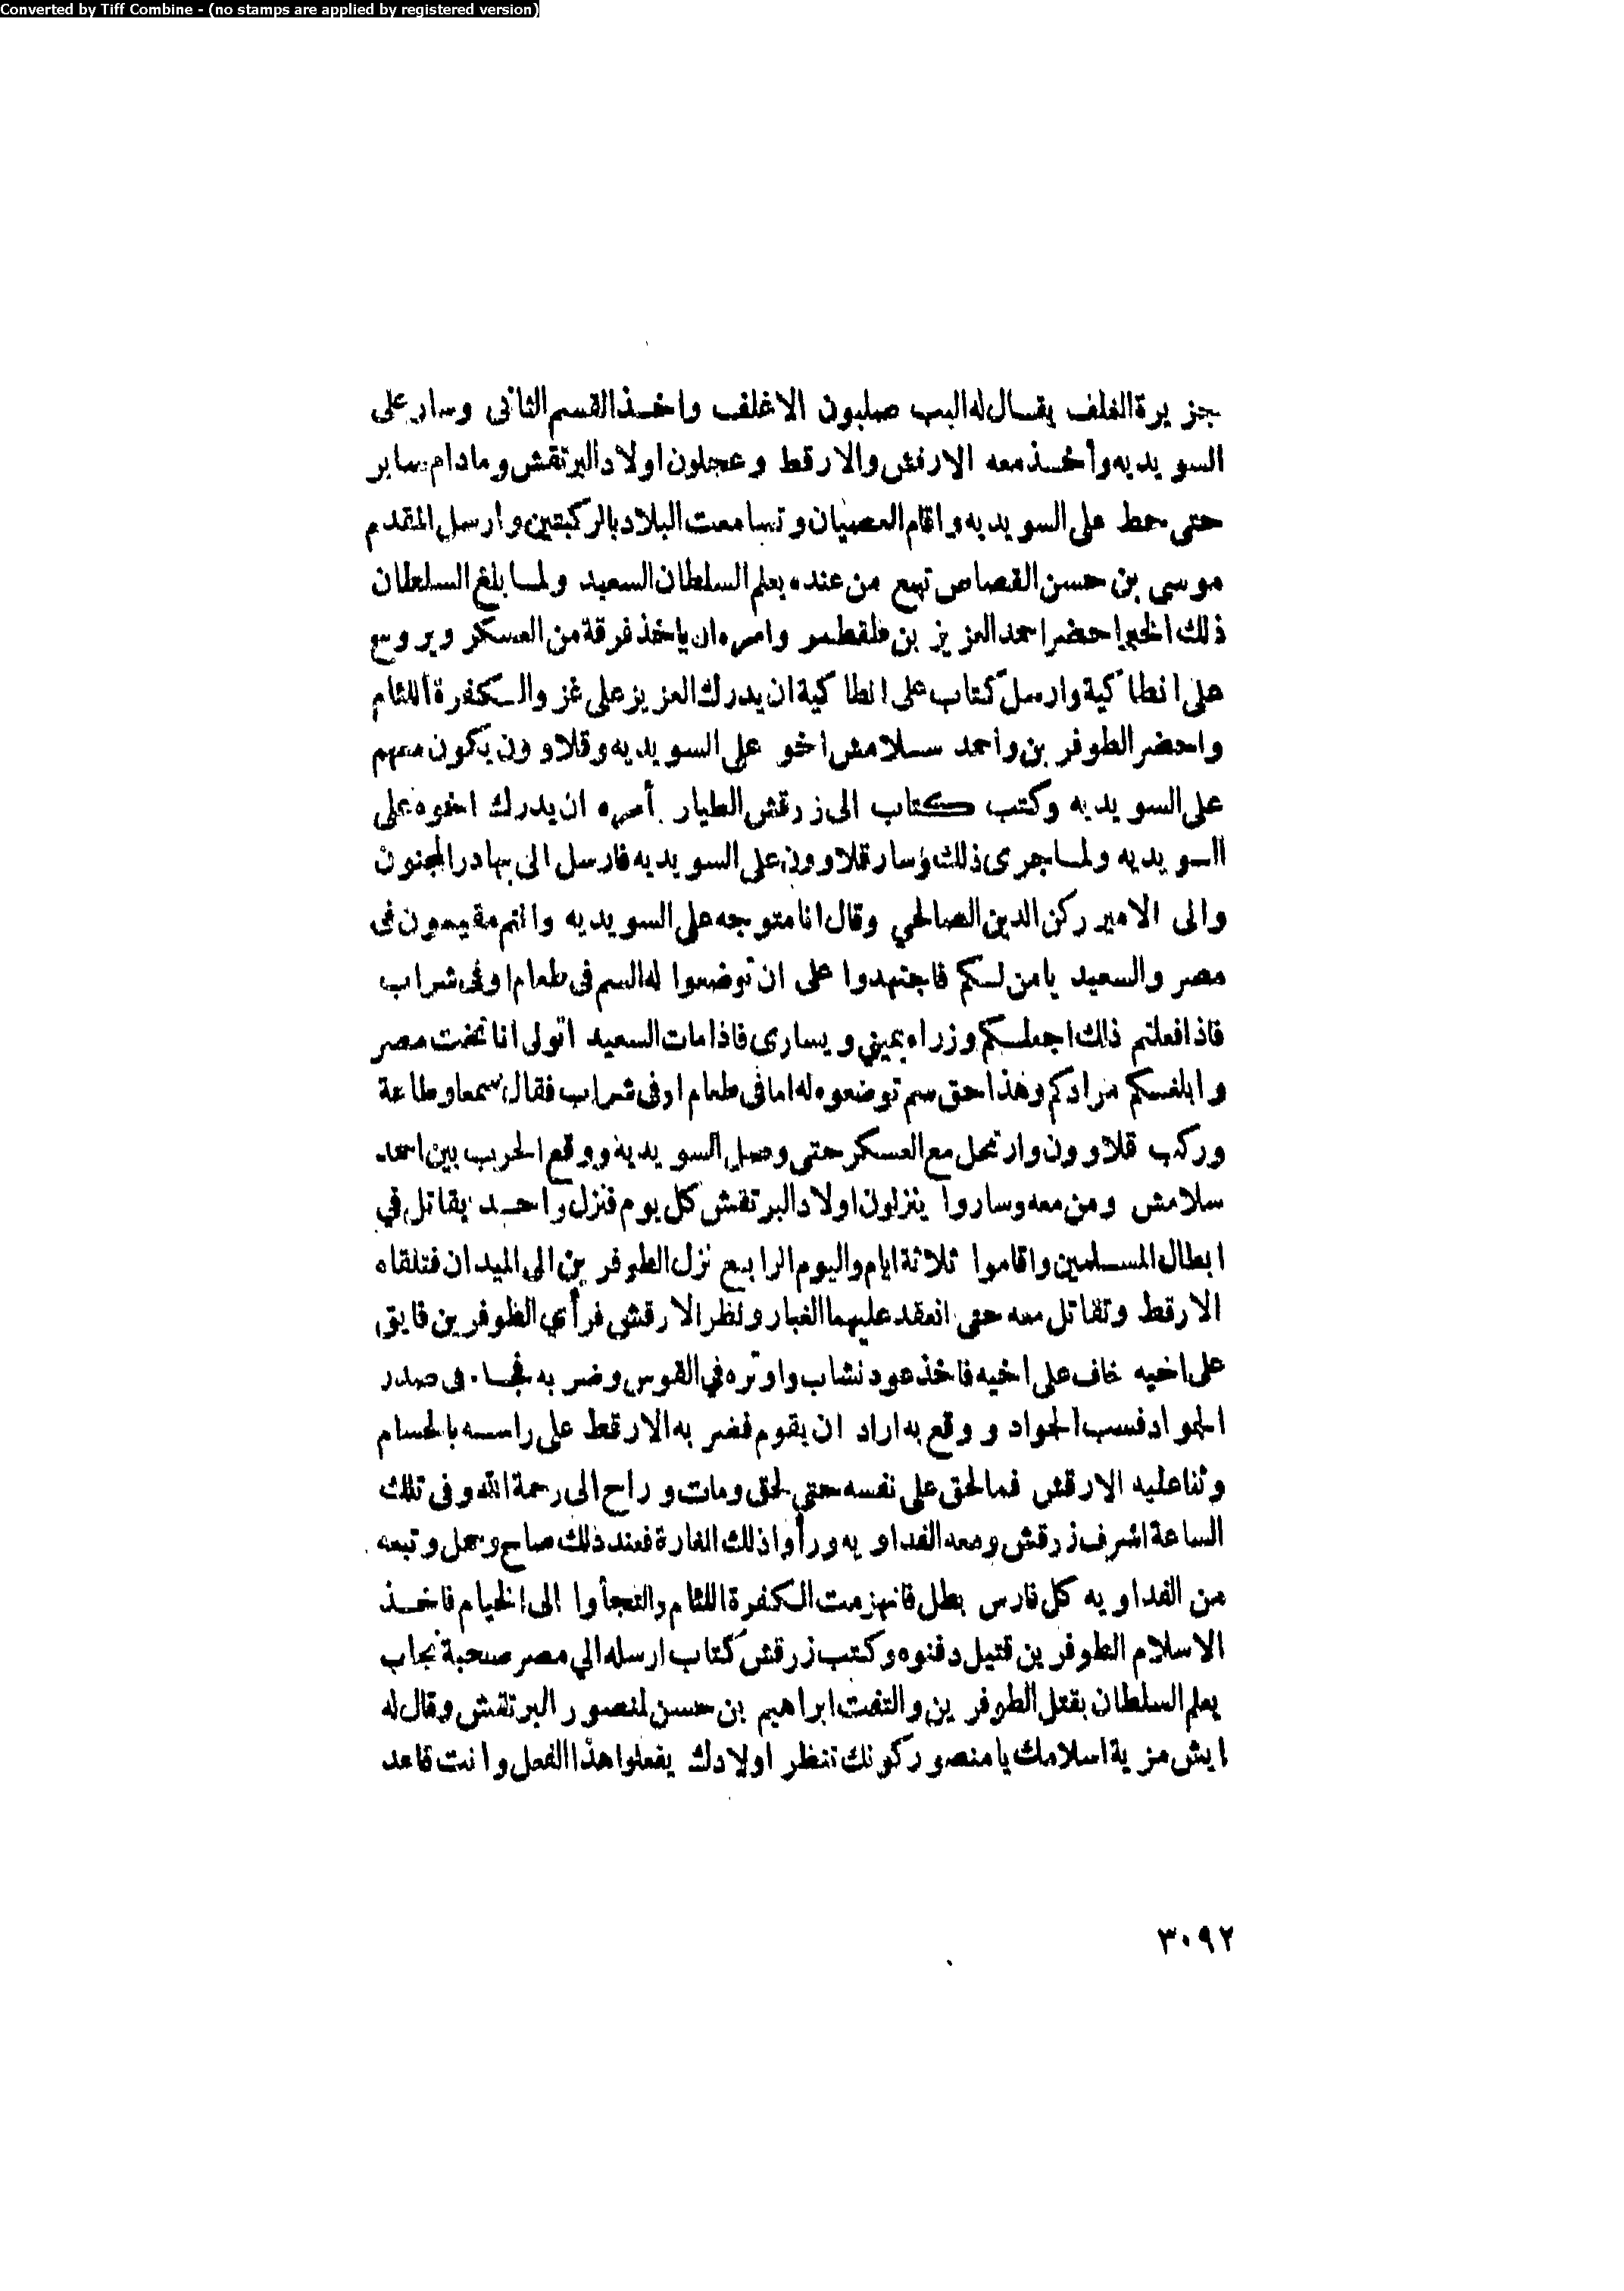 Converted by Tiff Combine - (no stamps are applied by registered version)
جزيرة الغلف يقال له البب صلبون الاغلف واخذ القسم الثانى وسار على
السويديه وأخذ معه الارقش والارقط وعجلون اولاد البرتقش ومادام ساير
حتى حط على السويديه واقام العصيان وتسامعت البلاد بالركبتين وارسل المقدم
موسي بن حسن القصاص تبع من عنده يعلم السلطان السعيد ولما بلغ السلطان
ذلك الخبر احضر احمد العزيز بن قلقطمر وامره ان ياخذ فرقة من العسكر ويروح
على انطاكية وارسل كتاب على انطاكية ان يدرك العزيز على غزو الكفرة اللئام
واحضر الطوفرين واحمد سلامش اخو على السويديه وقلاوون يكون معهم
على السويديه وكتب كتاب الى زرقش الطيار أمره ان يدرك اخوه على
السويديه ولما جرى ذلك وسار قلاوون على السويديه فارسل الى بهادر المجنون
والى الامير ركن الدين الصالحي وقال انا متوجه على السويديه وانتم مقيمون فى
مصر والسعيد يامن لكم فاجتهدوا على ان توضعوا له السم فى طعام اوفى شراب
فاذا فعلتم ذلك اجعلكم وزراء بميني ويسارى فاذا مات السعيد اتولى انا تخت مصر
وابلغكم مرادكم وهذا حق سم توضعوه له اما فى طعام او فى شراب فقال سمعا وطاعة
وركب قلاوون وارتحل مع العسكر حتى وصل السويديه ووقع الحرب بين احمد
سلامش ومن معه وساروا ينزلون اولاد البرتقش كل يوم فنزل واحد يقاتل في
ابطال المسلمين واقاموا ثلاثة ايام واليوم الرابع نزل الطوفرين الى الميدان فتلقاه
الارقط وتقاتل معه حتى انعقد عليهما الغبار ونظر الارقش فرأي الطوفرين فايق
على اخيه خاف على اخيه فاخذ عود نشاب واوتره في القوس وضربه فجاء فى صدر
الجواد فسب الجواد ووقع به اراد ان يقوم فضربه الارقط على راسه بالحسام
وثنا عليه الارقش فما لحق على نفسه حتي لحق ومات وراح الى رحمة الله وفى تلك
الساعة اشرف زرقش ومعه الفداويه ورأوا ذلك الغارة فعند ذلك صاح وحمل وتبعه
من الفداويه كل فارس بطل فانهزمت الكفرة اللئام والتجأوا الى الخيام فاخذ
الاسلام الطوفرين قتيل دفنوه وكتب زرقش كتاب ارسله الي مصر صحبة نجاب
يعلم السلطان بقتل الطوفرين والتفت ابراهيم بن حسن لمنصور البرتقش وقال له
ايش مزية اسلامك يا منصور كونك تنظر اولادك يفعلوا هذا الفعل وانت قاعد
٣٠٩٢